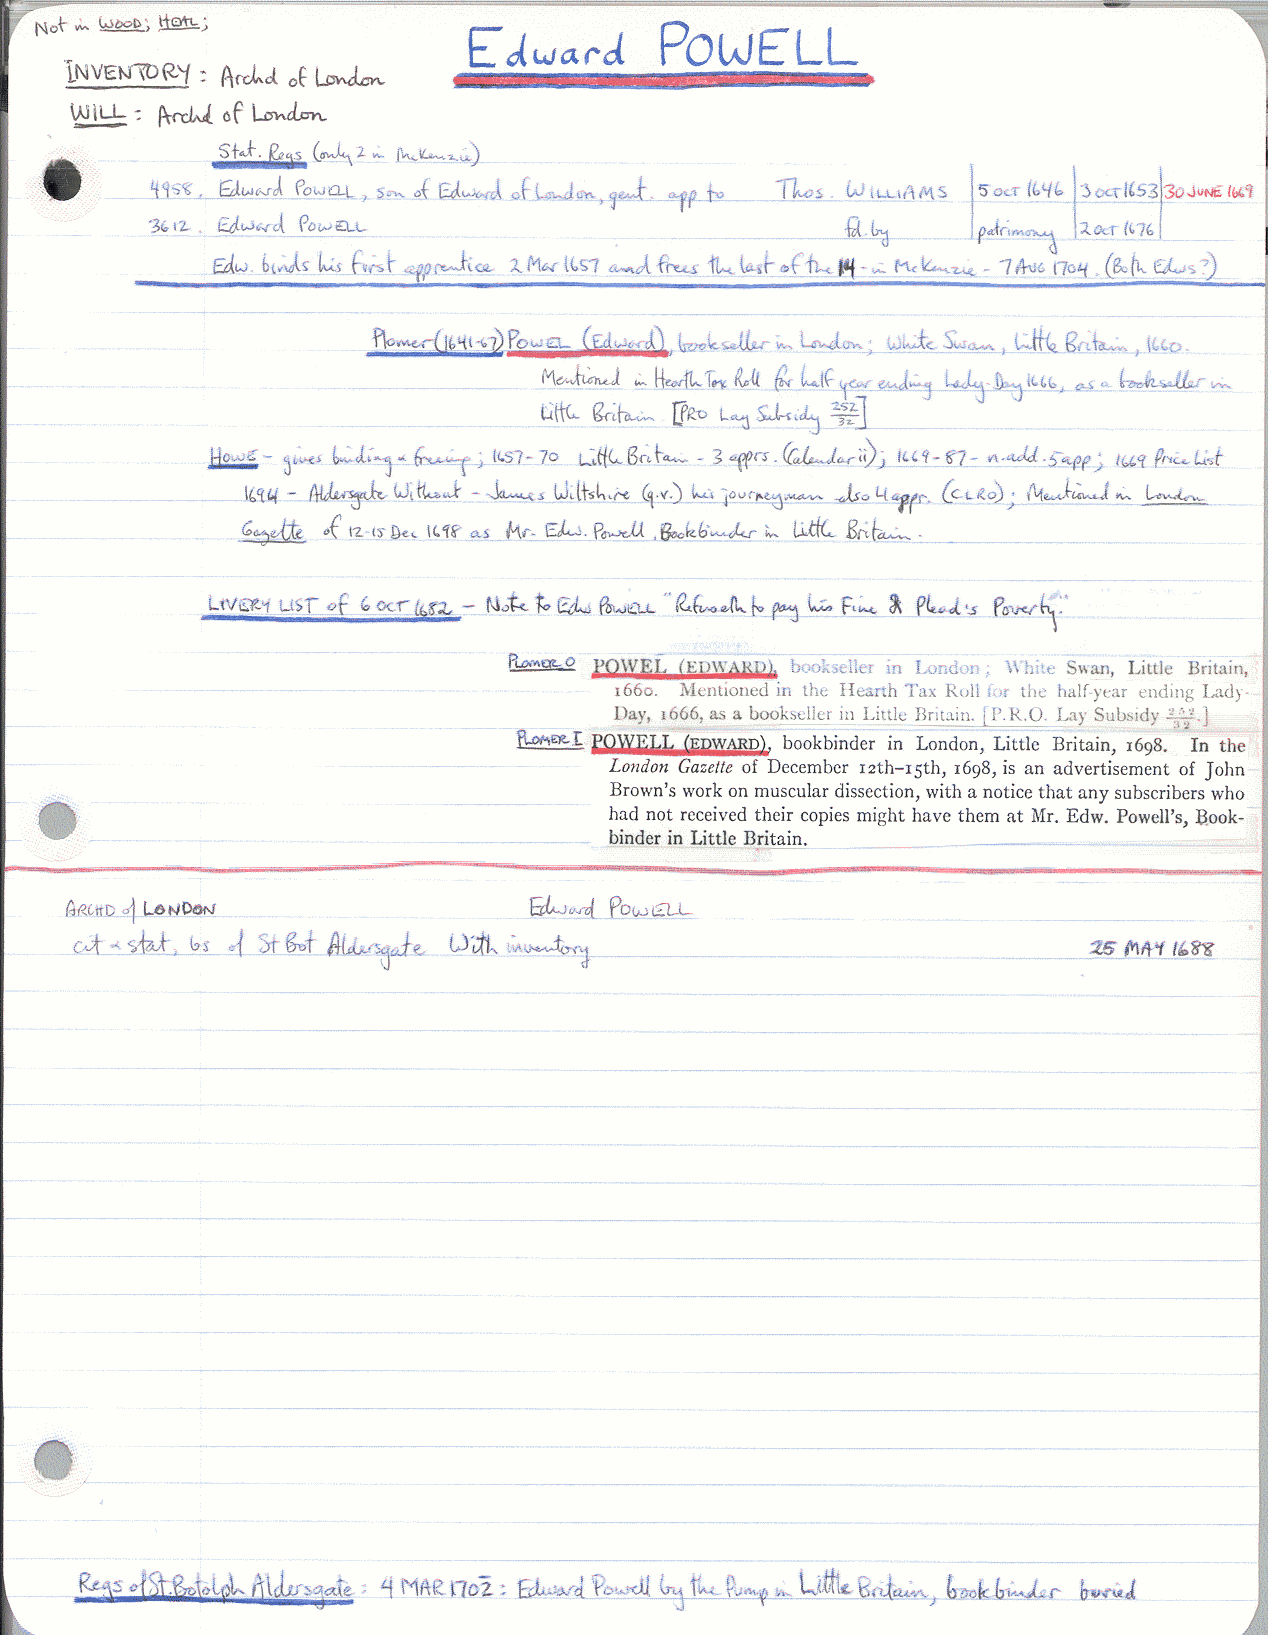 Not in WOOD; HOTL;
Edward POWELL
INVENTORY: Archd of London
WILL: Archd of London
Stat. Regs (only 2 in McKenzie)
4958. Edward POWELL, son of Edward of London, gent. app to Thos. WILLIAMS 5 OCT 1646 3 OCT 1653 30 JUNE 1669
3612. Edward POWELL fd. by patrimony 2 OCT 1676
Edw. binds his first apprentice 2 Mar 1657 and frees the last of the 14 - in McKenzie - 7 AUG 1704. (Both Edws?)
Plomer (1641-67) POWEL (Edward), bookseller in London; White Swan, Little Britain, 1660.
Mentioned in Hearth Tax Roll for half year ending Lady-Day 1666, as a bookseller in
Little Britain [PRO Lay Subsidy 252/32]
HOWE - gives binding & freeing; 1657-70 Little Britain - 3 apprs. (Calendar ii); 1669-87 - n. add. 5 app; 1669 Price List
1694 - Aldersgate Without - James Wiltshire (q.v.) his journeyman also 4 appr. (CLRO); Mentioned in London
Gazette of 12-15 Dec 1698 as Mr. Edw. Powell, Bookbinder in Little Britain.
LIVERY LIST of 6 OCT 1682 - Note to Edw POWELL "Refuseth to pay his Fine & Plead's Poverty."
PLOMER O POWEL (EDWARD), bookseller in London; White Swan, Little Britain,
1660. Mentioned in the Hearth Tax Roll for the half-year ending Lady-
Day, 1666, as a bookseller in Little Britain. [P.R.O. Lay Subsidy 252/32.]
PLOMER I POWELL (EDWARD), bookbinder in London, Little Britain, 1698. In the
London Gazette of December 12th–15th, 1698, is an advertisement of John
Brown's work on muscular dissection, with a notice that any subscribers who
had not received their copies might have them at Mr. Edw. Powell's, Book-
binder in Little Britain.
ARCHD of LONDON Edward POWELL
cit & stat, bs of St Bot Aldersgate With inventory 25 MAY 1688
Regs of St. Botolph Aldersgate: 4 MAR 1702: Edward Powell by the Pump in Little Britain, bookbinder buried